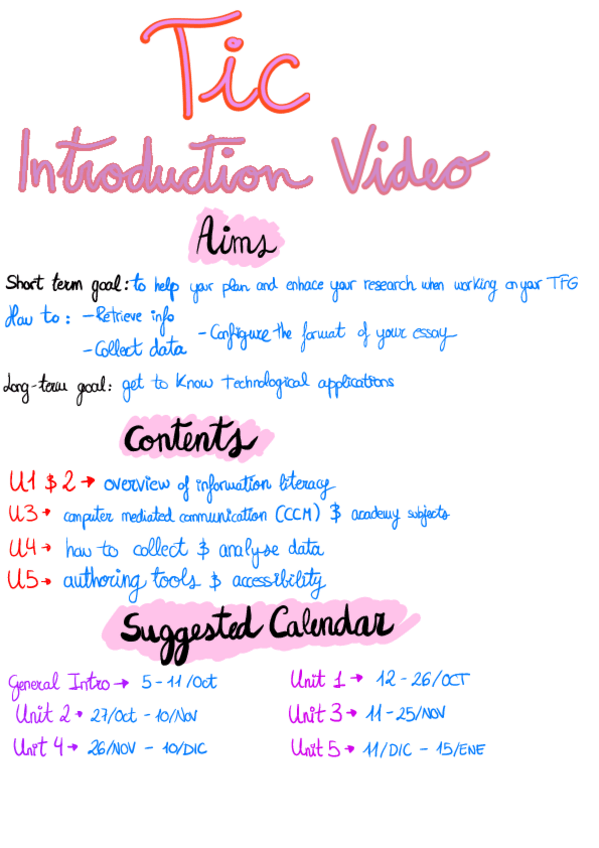 Tic
Introduction Video
Aims
Short term goal: to help your plan and enhace your research when working on your TFG
How to: - Retrieve info
- Configure the format of your essay
- Collect data
Long-term goal: get to know technological applications
Contents
U1 & 2 → overview of information literacy
U3 → computer mediated communication (CCM) & academy subjects
U4 → how to collect & analyse data
U5 → authoring tools & accessibility
Suggested Calendar
General Intro → 5-11/Oct Unit 1 → 12-26/OCT
Unit 2 → 27/Oct - 10/Nov Unit 3 → 11-25/NOV
Unit 4 → 26/NOV - 10/DIC Unit 5 → 11/DIC - 15/ENE